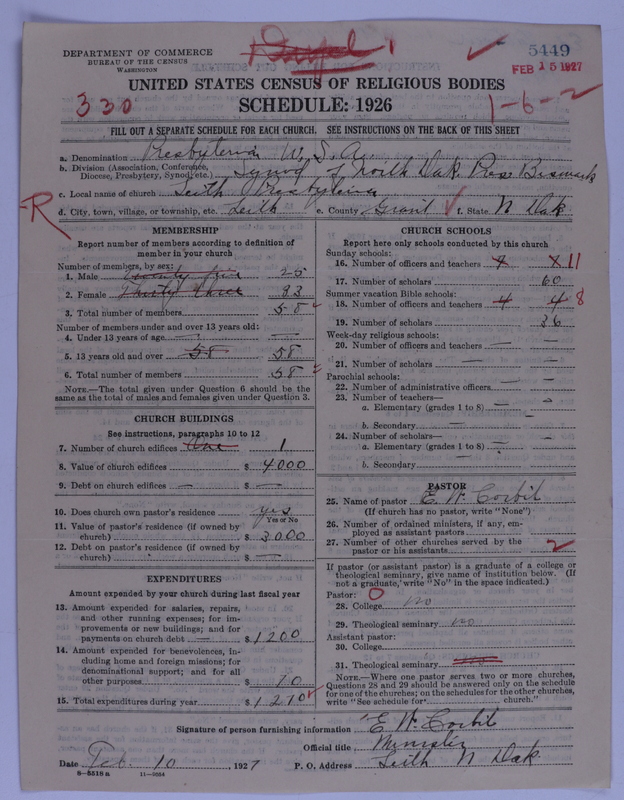 DEPARTMENT OF COMMERCE
BUREAU OF THE CENSUS
WASHINGTON
5449
FEB 15 1927
UNITED STATES CENSUS OF RELIGIOUS BODIES
330
SCHEDULE: 1926
1-6-2
FILL OUT A SEPARATE SCHEDULE FOR EACH CHURCH. SEE INSTRUCTIONS ON THE BACK OF THIS SHEET
a. Denomination Presbyterian U. S. A.
b. Division (Association, Conference, Diocese, Presbytery, Synod, etc.) Synod of North Dak Pres Bismark
c. Local name of church Leith Presbyterian
R
d. City, town, village, or township, etc. Leith e. County Grant f. State N Dak
MEMBERSHIP
Report number of members according to definition of member in your church
Number of members, by sex:
1. Male Twenty five 25
2. Female Thirty three 33
3. Total number of members 58
Number of members under and over 13 years old:
4. Under 13 years of age —
5. 13 years old and over 58 58
6. Total number of members 58
NOTE.—The total given under Question 6 should be the same as the total of males and females given under Question 3.
CHURCH BUILDINGS
See instructions, paragraphs 10 to 12
7. Number of church edifices One 1
8. Value of church edifices $ 4000
9. Debt on church edifices — $ —
10. Does church own pastor's residence yes
Yes or No
11. Value of pastor's residence (if owned by church) $ 3000
12. Debt on pastor's residence (if owned by church) $ —
EXPENDITURES
Amount expended by your church during last fiscal year
13. Amount expended for salaries, repairs, and other running expenses; for improvements or new buildings; and for payments on church debt — $ 1200
14. Amount expended for benevolences, including home and foreign missions; for denominational support; and for all other purposes $ 10
15. Total expenditures during year $ 1210
CHURCH SCHOOLS
Report here only schools conducted by this church
Sunday schools:
16. Number of officers and teachers 8 8 11
17. Number of scholars 60
Summer vacation Bible schools:
18. Number of officers and teachers 4 4 8
19. Number of scholars 36
Week-day religious schools:
20. Number of officers and teachers — —
21. Number of scholars — —
Parochial schools:
22. Number of administrative officers — —
23. Number of teachers—
a. Elementary (grades 1 to 8) — —
b. Secondary — —
24. Number of scholars—
a. Elementary (grades 1 to 8) — —
b. Secondary — —
PASTOR
25. Name of pastor E. W. Corbit
(If church has no pastor, write "None")
26. Number of ordained ministers, if any, employed as assistant pastors
27. Number of other churches served by the pastor or his assistants 2
If pastor (or assistant pastor) is a graduate of a college or theological seminary, give name of institution below. (If not a graduate, write "No" in the space indicated.)
Pastor: 0
28. College no
29. Theological seminary no
Assistant pastor:
30. College
31. Theological seminary
NOTE.—Where one pastor serves two or more churches, Questions 28 and 29 should be answered only on the schedule for one of the churches; on the schedules for the other churches, write "See schedule for church."
Signature of person furnishing information E W Corbit
Official title Minister
Date Feb. 10, 1927 P. O. Address Leith N Dak
8-5518a 11-9954